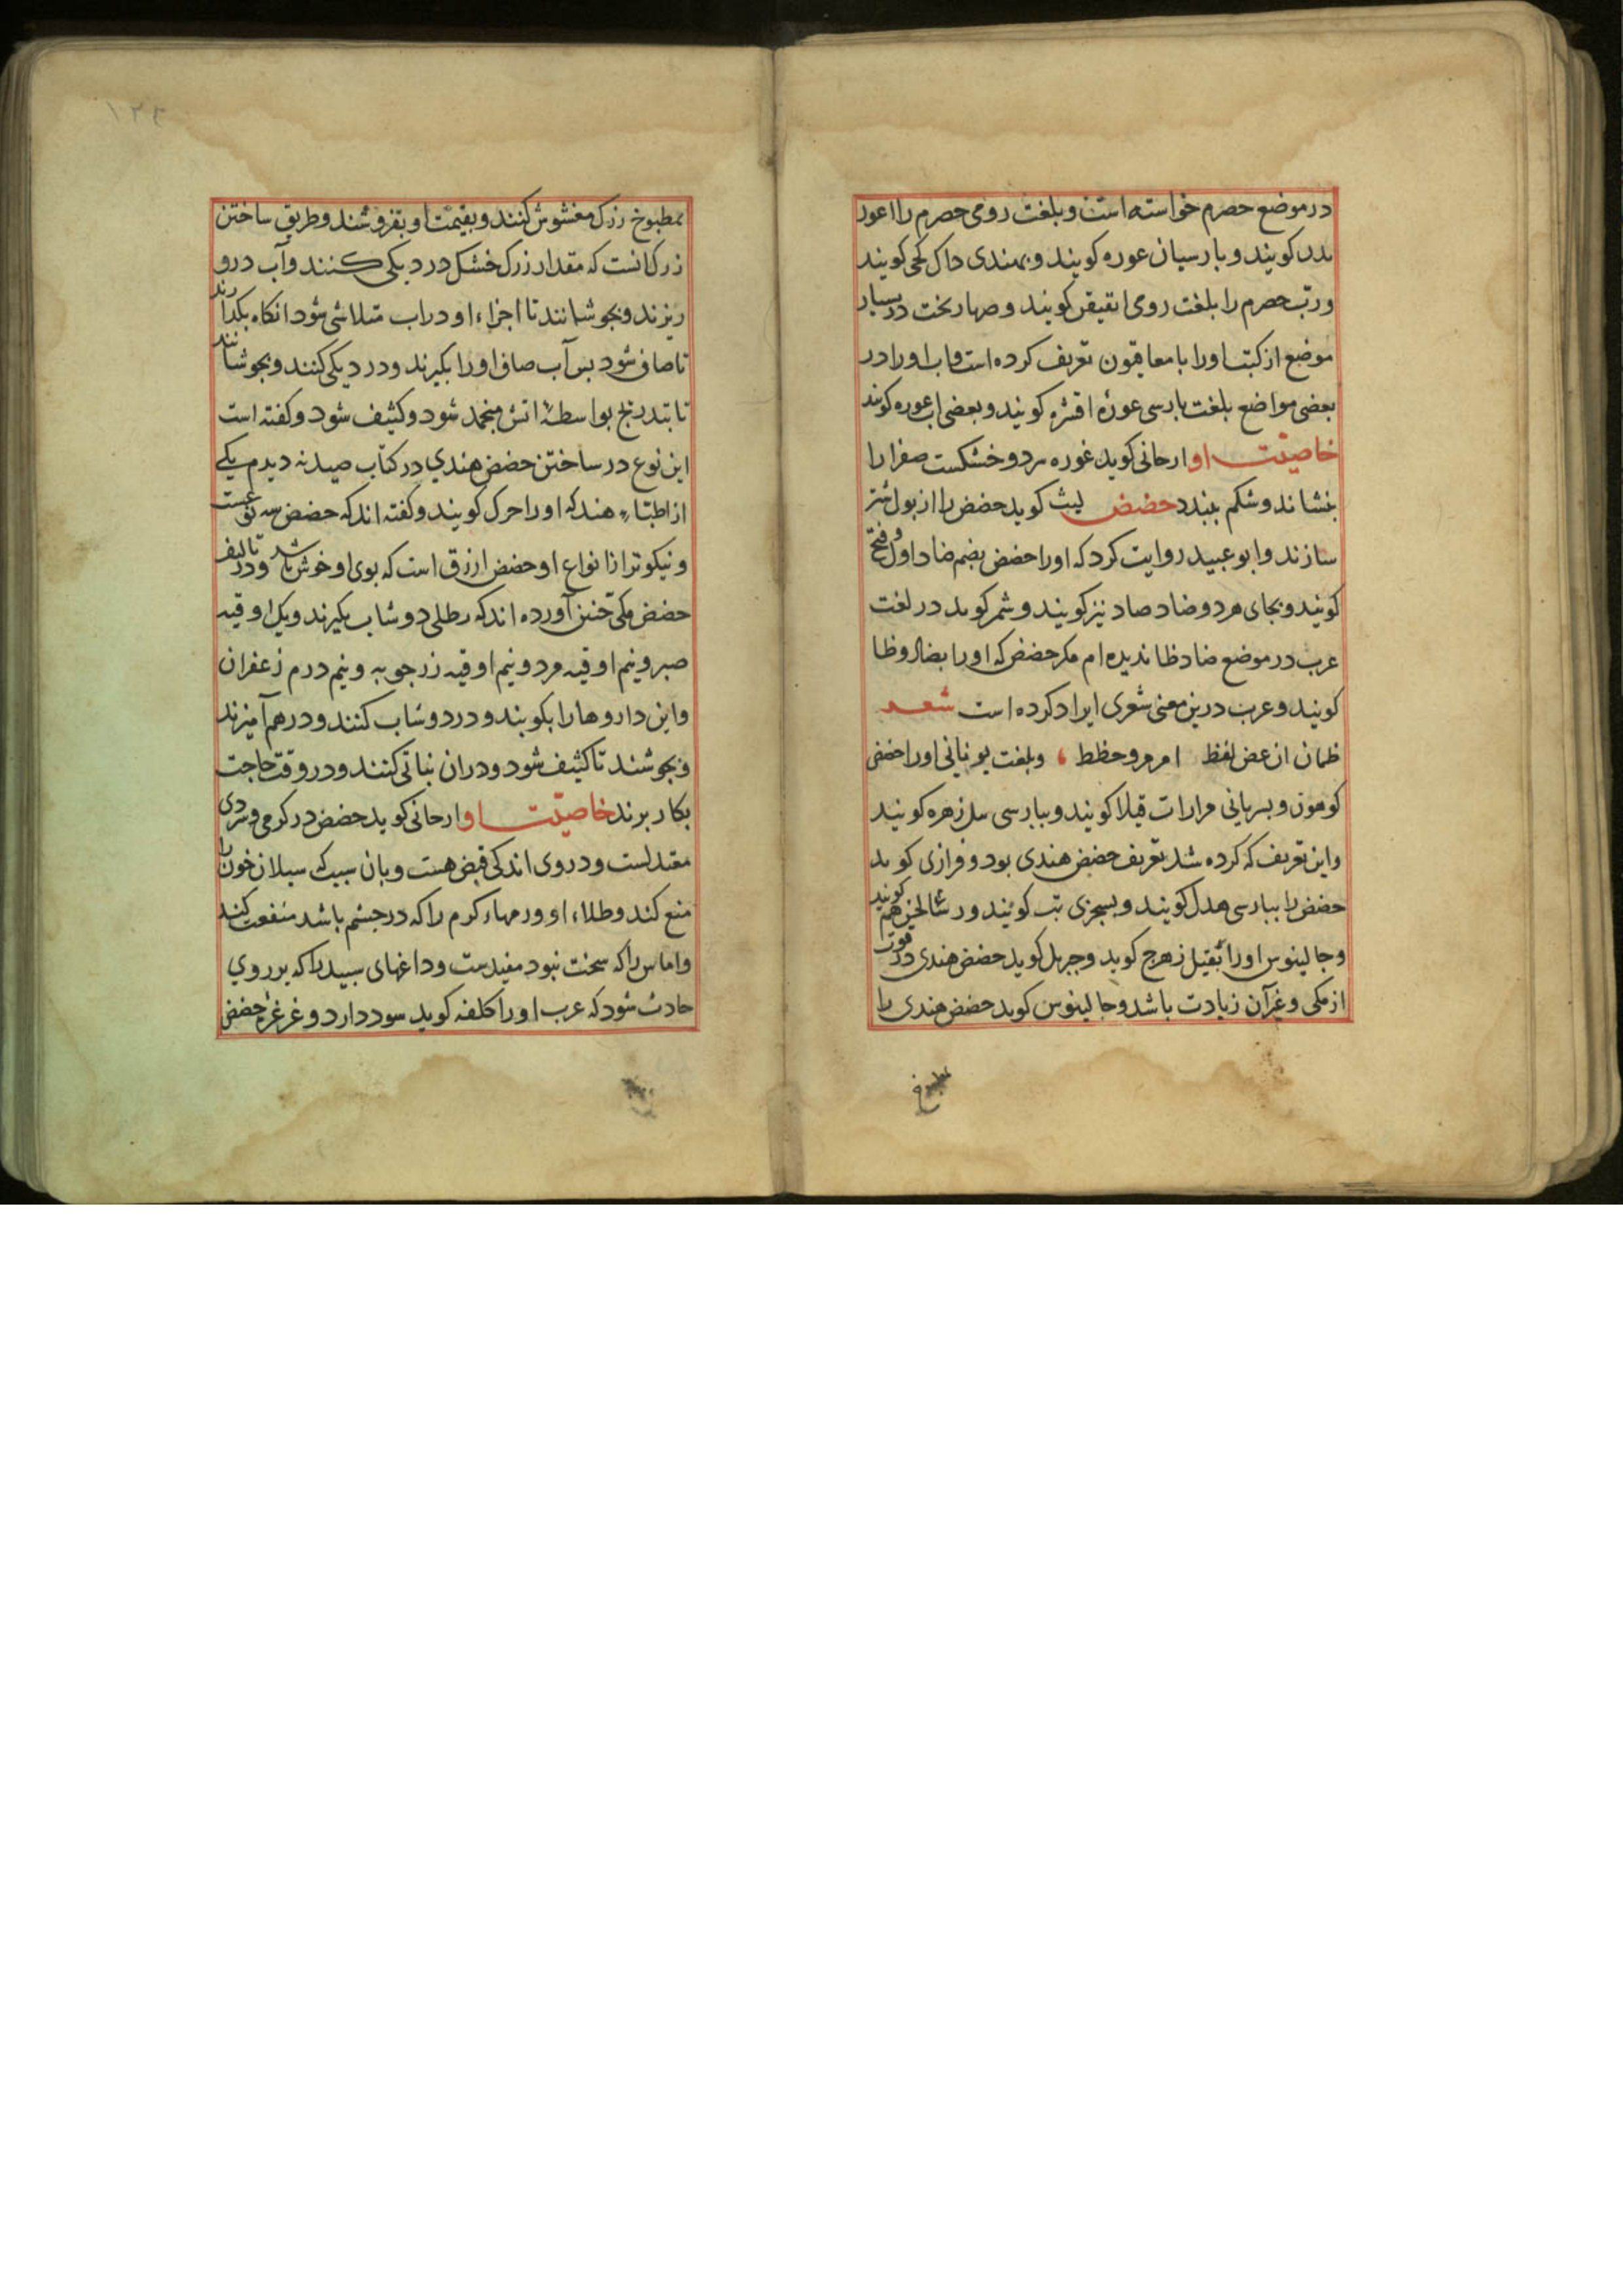 در موضع حصرم خواسته است و بلغت رومی حصرم را اعور
کویند و بارسیان عوره کویند و بهندی داک کجی کویند
و ربّ حصرم را بلغت رومی کویند و صهاربخت در بسیار
موضع از کتب اورا با معاقیون تعریف کرده است و اورا در
بعضی مواضع بلغت بارسی عوره افشره کویند و بعضی اب عوره کویند
خاصیّت او ارجانی کوید غوره سرد و خشکست صفرا را
بنشاند و شکم ببندد حضض لیث کوید حضض را از بول شتر
سازند و ابو عبید روایت کرد که اورا حضض بضم ضاد اول و فتح
کویند و بجای هر دو ضاد صاد نیز کویند و شمر کوید در لغت
عرب در موضع ضاد ظا ندیده ام مکر حضض که اورا بضاد و ظا
کویند و عرب درین معنی شعری ایراد کرده است شعر
ظمان ان عض لفظ امر مر و حظظ ، و بلغت یونانی اورا
کومون و بسریانی مرارات فیلا کویند و ببارسی بیل زهره کویند
و این تعریف که کرده شد تعریف حضض هندی بود و فرازی کوید
حضض را ببارسی هدل کویند و بسجزی تب کویند و هم کویند
و جالینوس اورا زهرج کوید و کوید حضض هندی در قوت
از مکی و غیر آن زیادت باشد و جالینوس کوید حضض هندی را
بمطبوخ
بمطبوخ زرک مغشوش کنند و بقیمت او بفروشند و طریق ساختن
زرک انست که مقدار زرک خشک در دیکی کنند و آب درو
ریزند و بجوشانند تا اجزاء او در اب متلاشی شود انکاه بکذارند
تا صافی شود بس آب صافی اورا بکیرند و در دیکی کنند و بجوشانند
تا بتدریج بواسطهٔ اتش منجمد شود و کثیف شود و کفته است
این نوع در ساختن حضض هندی در کتاب صیدنه دیدم یکی
از اطبّاء هند که اورا حرک کویند و کفته اند که حضض سه نوعست
و نیکوتر از انواع او حضض ازرق است که بوی او خوش باشد و در تالیف
حضض مکی چنین آورده اند که رطلی دوشاب بکیرند و یک اوقیه
صبر و نیم اوقیه مر و نیم اوقیه زرجوبه و نیم درم زعفران
و این داروها را بکوبند و در دوشاب کنند و در هم آمیزند
و بجوشند تا کثیف شود و دران نباتی کنند و در وقت حاجت
بکار برند خاصیّت او ارجانی کوید حضض در کرمی و سردی
معتدلست و در وی اندکی قبض هست و بان سبب که سیلان خون را
منع کند و طلاء او ورمهاء کرم را که در جشم باشد منفعت کند
و اماس را که سخت نبود مفیدست و داغهای سبید را که بر روی
حادث شود که عرب اورا کلفه کوید سود دارد و غرغره حضض